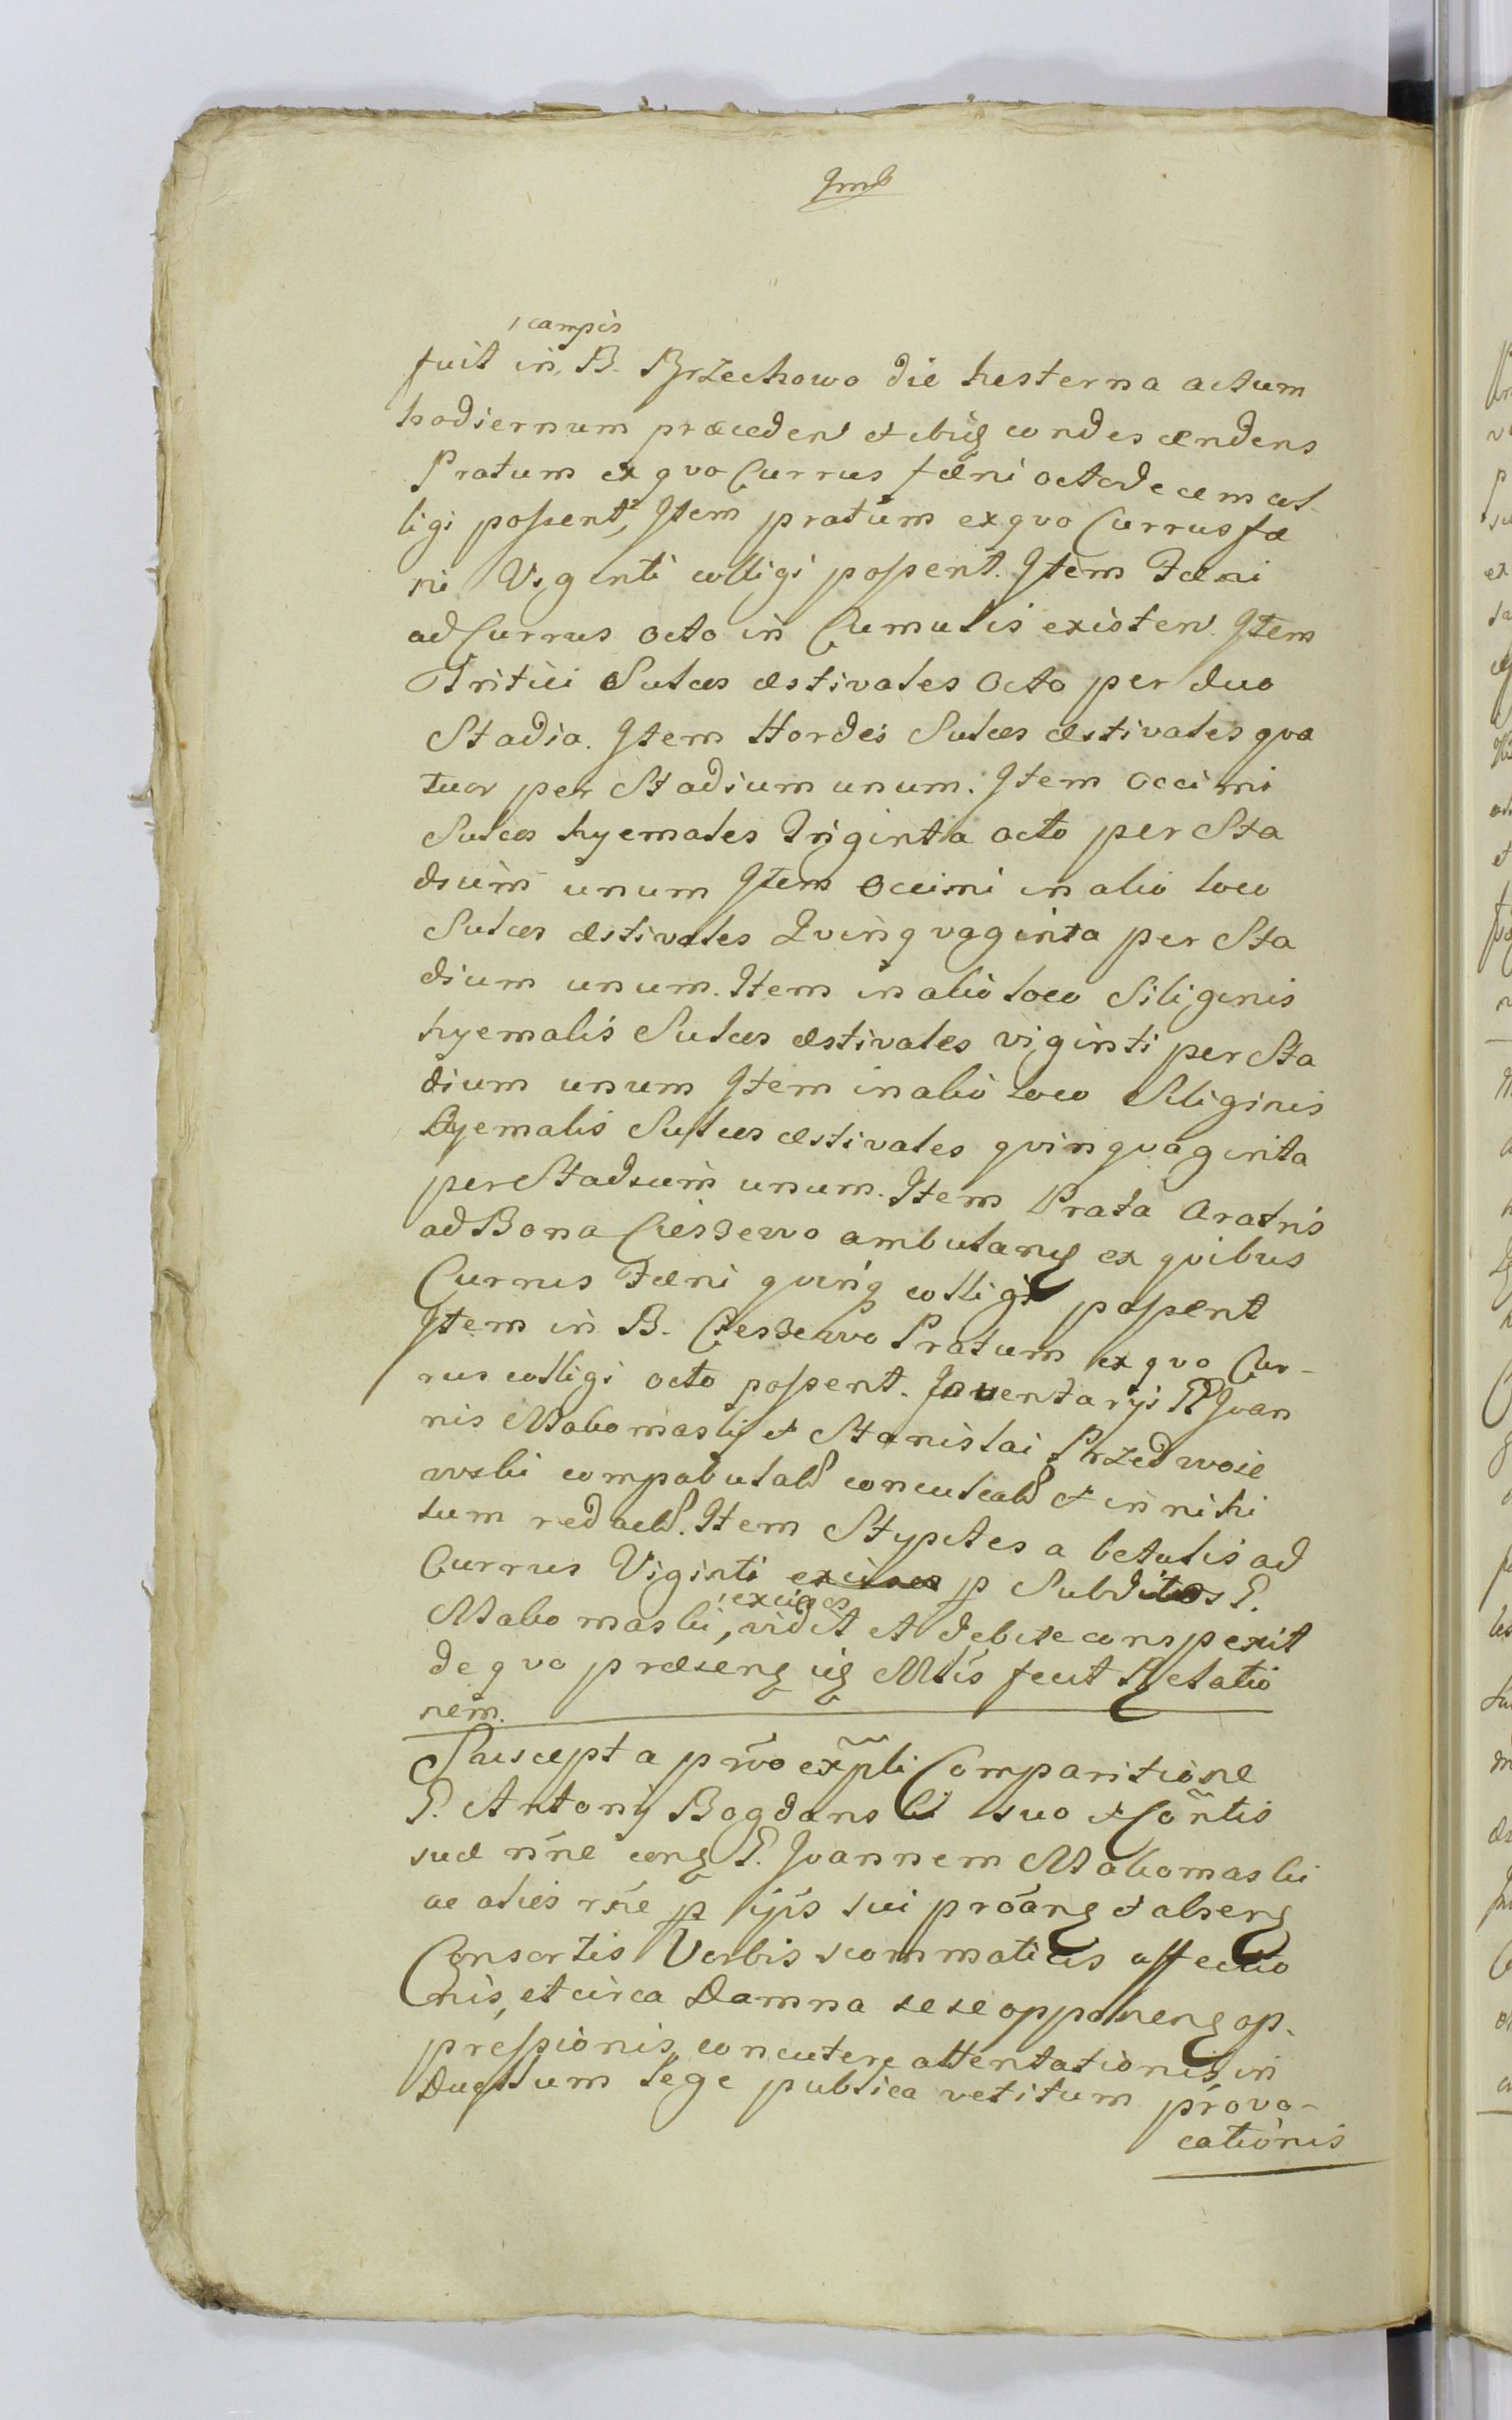 campis
fuit in B. Brzechowo die hesterna actum
hodiernum præceden et ibiq condescændens
Pratum ex qvo Currus fæni octodecem col-
ligi possent, Item pratum ex qvo Currus fæ
ni Viginti colligi possent. Item Fæni
ad Currus octo in Cumulis existen. Item
Tritici Sulcos æstivales Octo per duo
Stadia. Item Hordei Sulcos æstivales qva
tuor per Stadium unum. Item occimi
Sulcos hyemales Triginta octo per Sta
dium unum Item occimi in alio loco
Sulcos æstivales Qvinqvaginta per Sta
dium unum. Item in alio loco Siliginis
hyemalis Sulcos æstivales viginti per Sta
dium unum Item in alio loco Siliginis
hyemalis Sulcos æstivales qvinqvaginta
per Stadium unum. Item Prata Aratris
ad Bona Ciessewo ambulanq ex qvibus
Currus Fæni qvinq colligi possent
Item in B. Ciessewo Pratum ex qvo Cur-
rus colligi octo possent. Inventarÿs PP Joan
nis Makomaski et Stanislai Przedwoie
wski compabulat conculcat et in nihi
lum redact. Item Stypites a betulis ad
Currus Viginti excisos p Subditos P.
excisos
Makomaski, vidit et debite conspexit
de qvo præsenq iq Mtis fecit Relatio
nem.
Suscepta prvo exmpli Comparitione
P. Antonÿ Bogdanski suo et Contis
suæ nne conq P. Joannem Makomaski
ac alies rne p ipis sui proanq et absenq
Consortis Verbis scommaticis affectio
nis, et circa Damna sese opponenq op-
pressionis, concutere attentationis, in
Duellum lege publica vetitum provo-
cationis